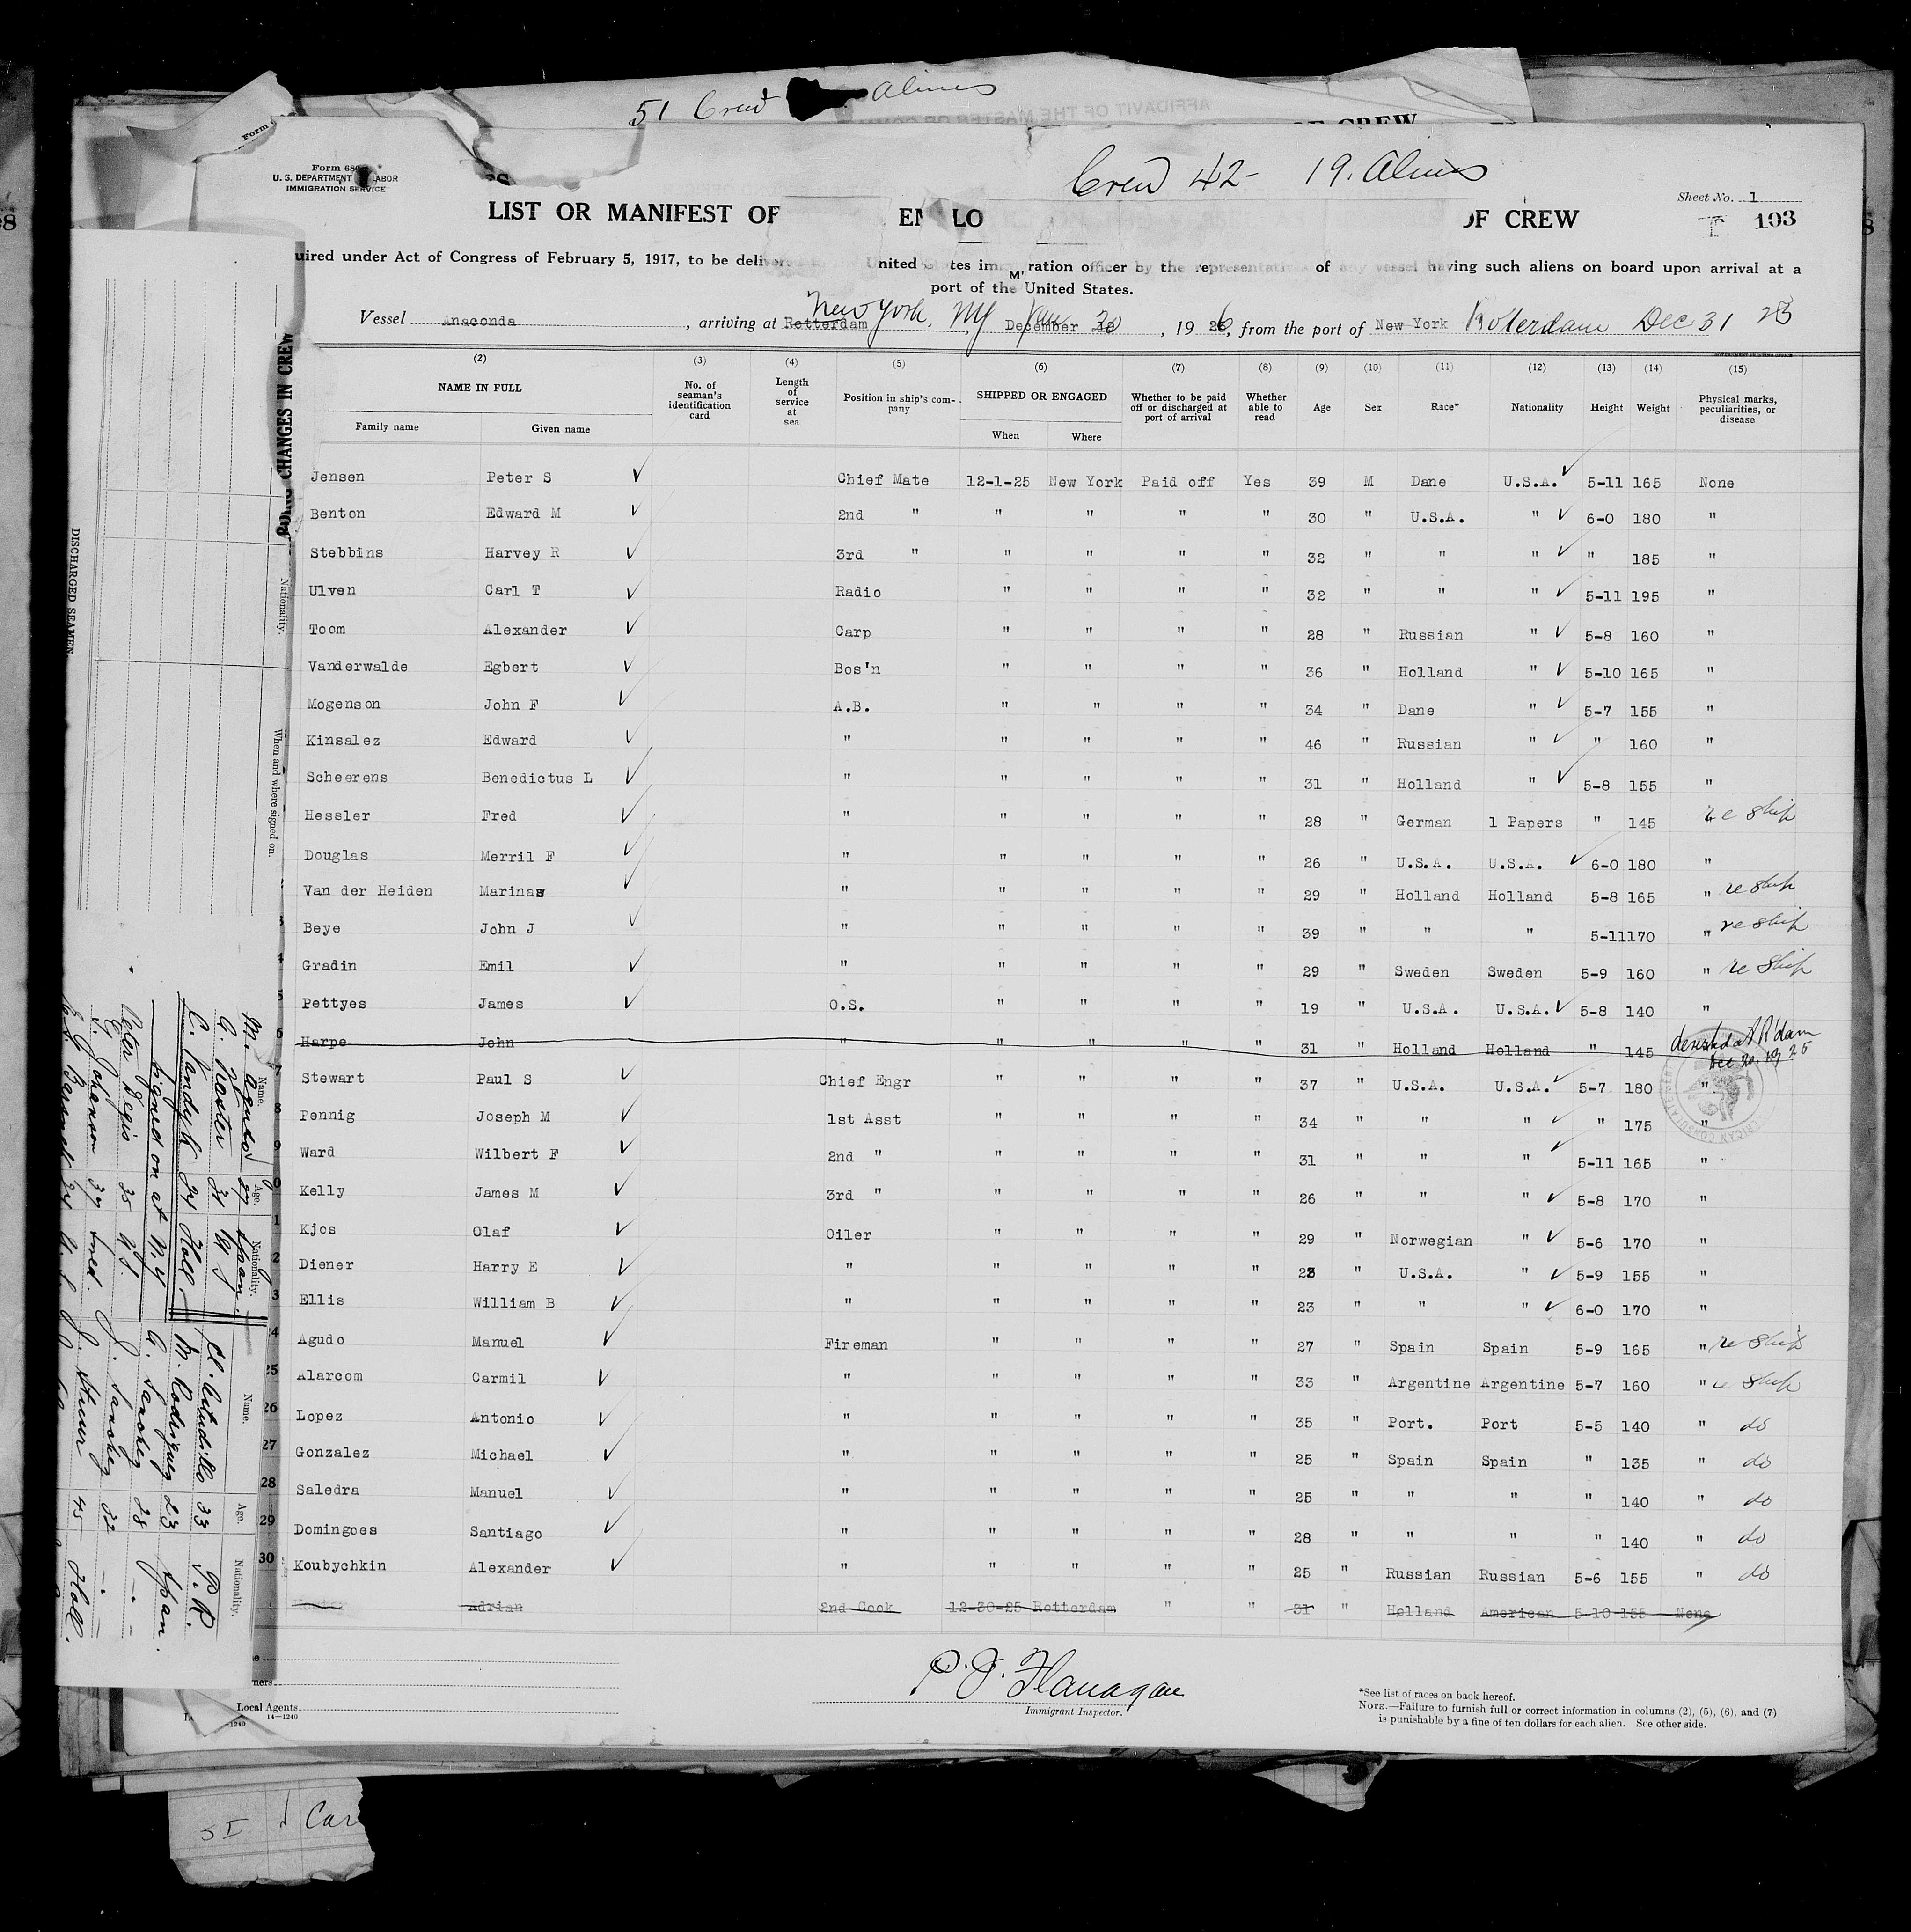 51 Crew Aliens
OF CREW
Form 689
U. S. DEPARTMENT LABOR
IMMIGRATION SERVICE
Crew 42- 19. Aliens
Sheet No. 1
LIST OR MANIFEST OF OF CREW
103
uired under Act of Congress of February 5, 1917, to be deliv United tes im ration officer by the representative of any vessel having such aliens on board upon arrival at a
port of the United States.
Vessel Anaconda, arriving at Rotterdam New York, NY December 18 Jan 20, 1926, from the port of New York Rotterdam Dec 31 25
(2) (3) (4) (5) (6) (7) (8) (9) (10) (11) (12) (13) (14) (15)
NAME IN FULL No. of seaman's identification card Length of service at sea Position in ship's company SHIPPED OR ENGAGED Whether to be paid off or discharged at port of arrival Whether able to read Age Sex Race* Nationality Height Weight Physical marks, peculiarities, or disease
Family name Given name When Where
Jensen Peter S Chief Mate 12-1-25 New York Paid off Yes 39 M Dane U.S.A. 5-11 165 None
Benton Edward M 2nd " " " " " 30 " U.S.A. " 6-0 180 "
Stebbins Harvey R 3rd " " " " " 32 " " " " 185 "
Ulven Carl T Radio " " " " 32 " " " 5-11 195 "
Toom Alexander Carp " " " " 28 " Russian " 5-8 160 "
Vanderwalde Egbert Bos'n " " " " 36 " Holland " 5-10 165 "
Mogenson John F A.B. " " " " 34 " Dane " 5-7 155 "
Kinsalez Edward " " " " " 46 " Russian " " 160 "
Scheerens Benedictus L " " " " " 31 " Holland " 5-8 155 "
Hessler Fred " " " " " 28 " German 1 Papers " 145 re ship
Douglas Merril F " " " " " 26 " U.S.A. U.S.A. 6-0 180 "
Van der Heiden Marinas " " " " " 29 " Holland Holland 5-8 165 " re ship
Beye John J " " " " " 39 " " " 5-11 170 " re ship
Gradin Emil " " " " " 29 " Sweden Sweden 5-9 160 " re ship
Pettyes James O.S. " " " " 19 " U.S.A. U.S.A. 5-8 140 "
Harpe John " " " " " 31 " Holland Holland " 145 deserted at R'dam Dec 20, 1925
Stewart Paul S Chief Engr " " " " 37 " U.S.A. U.S.A. 5-7 180 "
Pennig Joseph M 1st Asst " " " " 34 " " " " 175 "
Ward Wilbert F 2nd " " " " " 31 " " " 5-11 165 "
Kelly James M 3rd " " " " " 26 " " " 5-8 170 "
Kjos Olaf Oiler " " " " 29 " Norwegian " 5-6 170 "
Diener Harry E " " " " " 23 " U.S.A. " 5-9 155 "
Ellis William B " " " " " 23 " " " 6-0 170 "
Agudo Manuel Fireman " " " " 27 " Spain Spain 5-9 165 " re ship
25 Alarcom Carmil " " " " " 33 " Argentine Argentine 5-7 160 " re ship
26 Lopez Antonio " " " " " 35 " Port. Port 5-5 140 " do
27 Gonzalez Michael " " " " " 25 " Spain Spain " 135 " do
28 Saledra Manuel " " " " " 25 " " " " 140 " do
29 Domingoes Santiago " " " " " 28 " " " " 140 " do
30 Koubychkin Alexander " " " " " 25 " Russian Russian 5-6 155 " do
Adrian 2nd Cook 12-30-25 Rotterdam " " 31 " Holland American 5-10 155 None
P. J. Flanagan
Immigrant Inspector.
*See list of races on back hereof.
NOTE.—Failure to furnish full or correct information in columns (2), (5), (6), and (7)
is punishable by a fine of ten dollars for each alien. See other side.
Local Agents
14—1240
CHANGES IN CREW
DISCHARGED SEAMEN.
Nationality.
When and where signed on.
Name. Age. Nationality.
M. Agudo 27 Span.
C. Vandyk 24 Holl.
Signed on at N.Y.
Peter Degis 35
J. Johanson 37
Name. Age. Nationality.
Astudillo 33 P.R.
M. Rodriguez 23 Span.
A. Sanchez 28
J. Sanchez 32
J. Stuur 45 Holl.